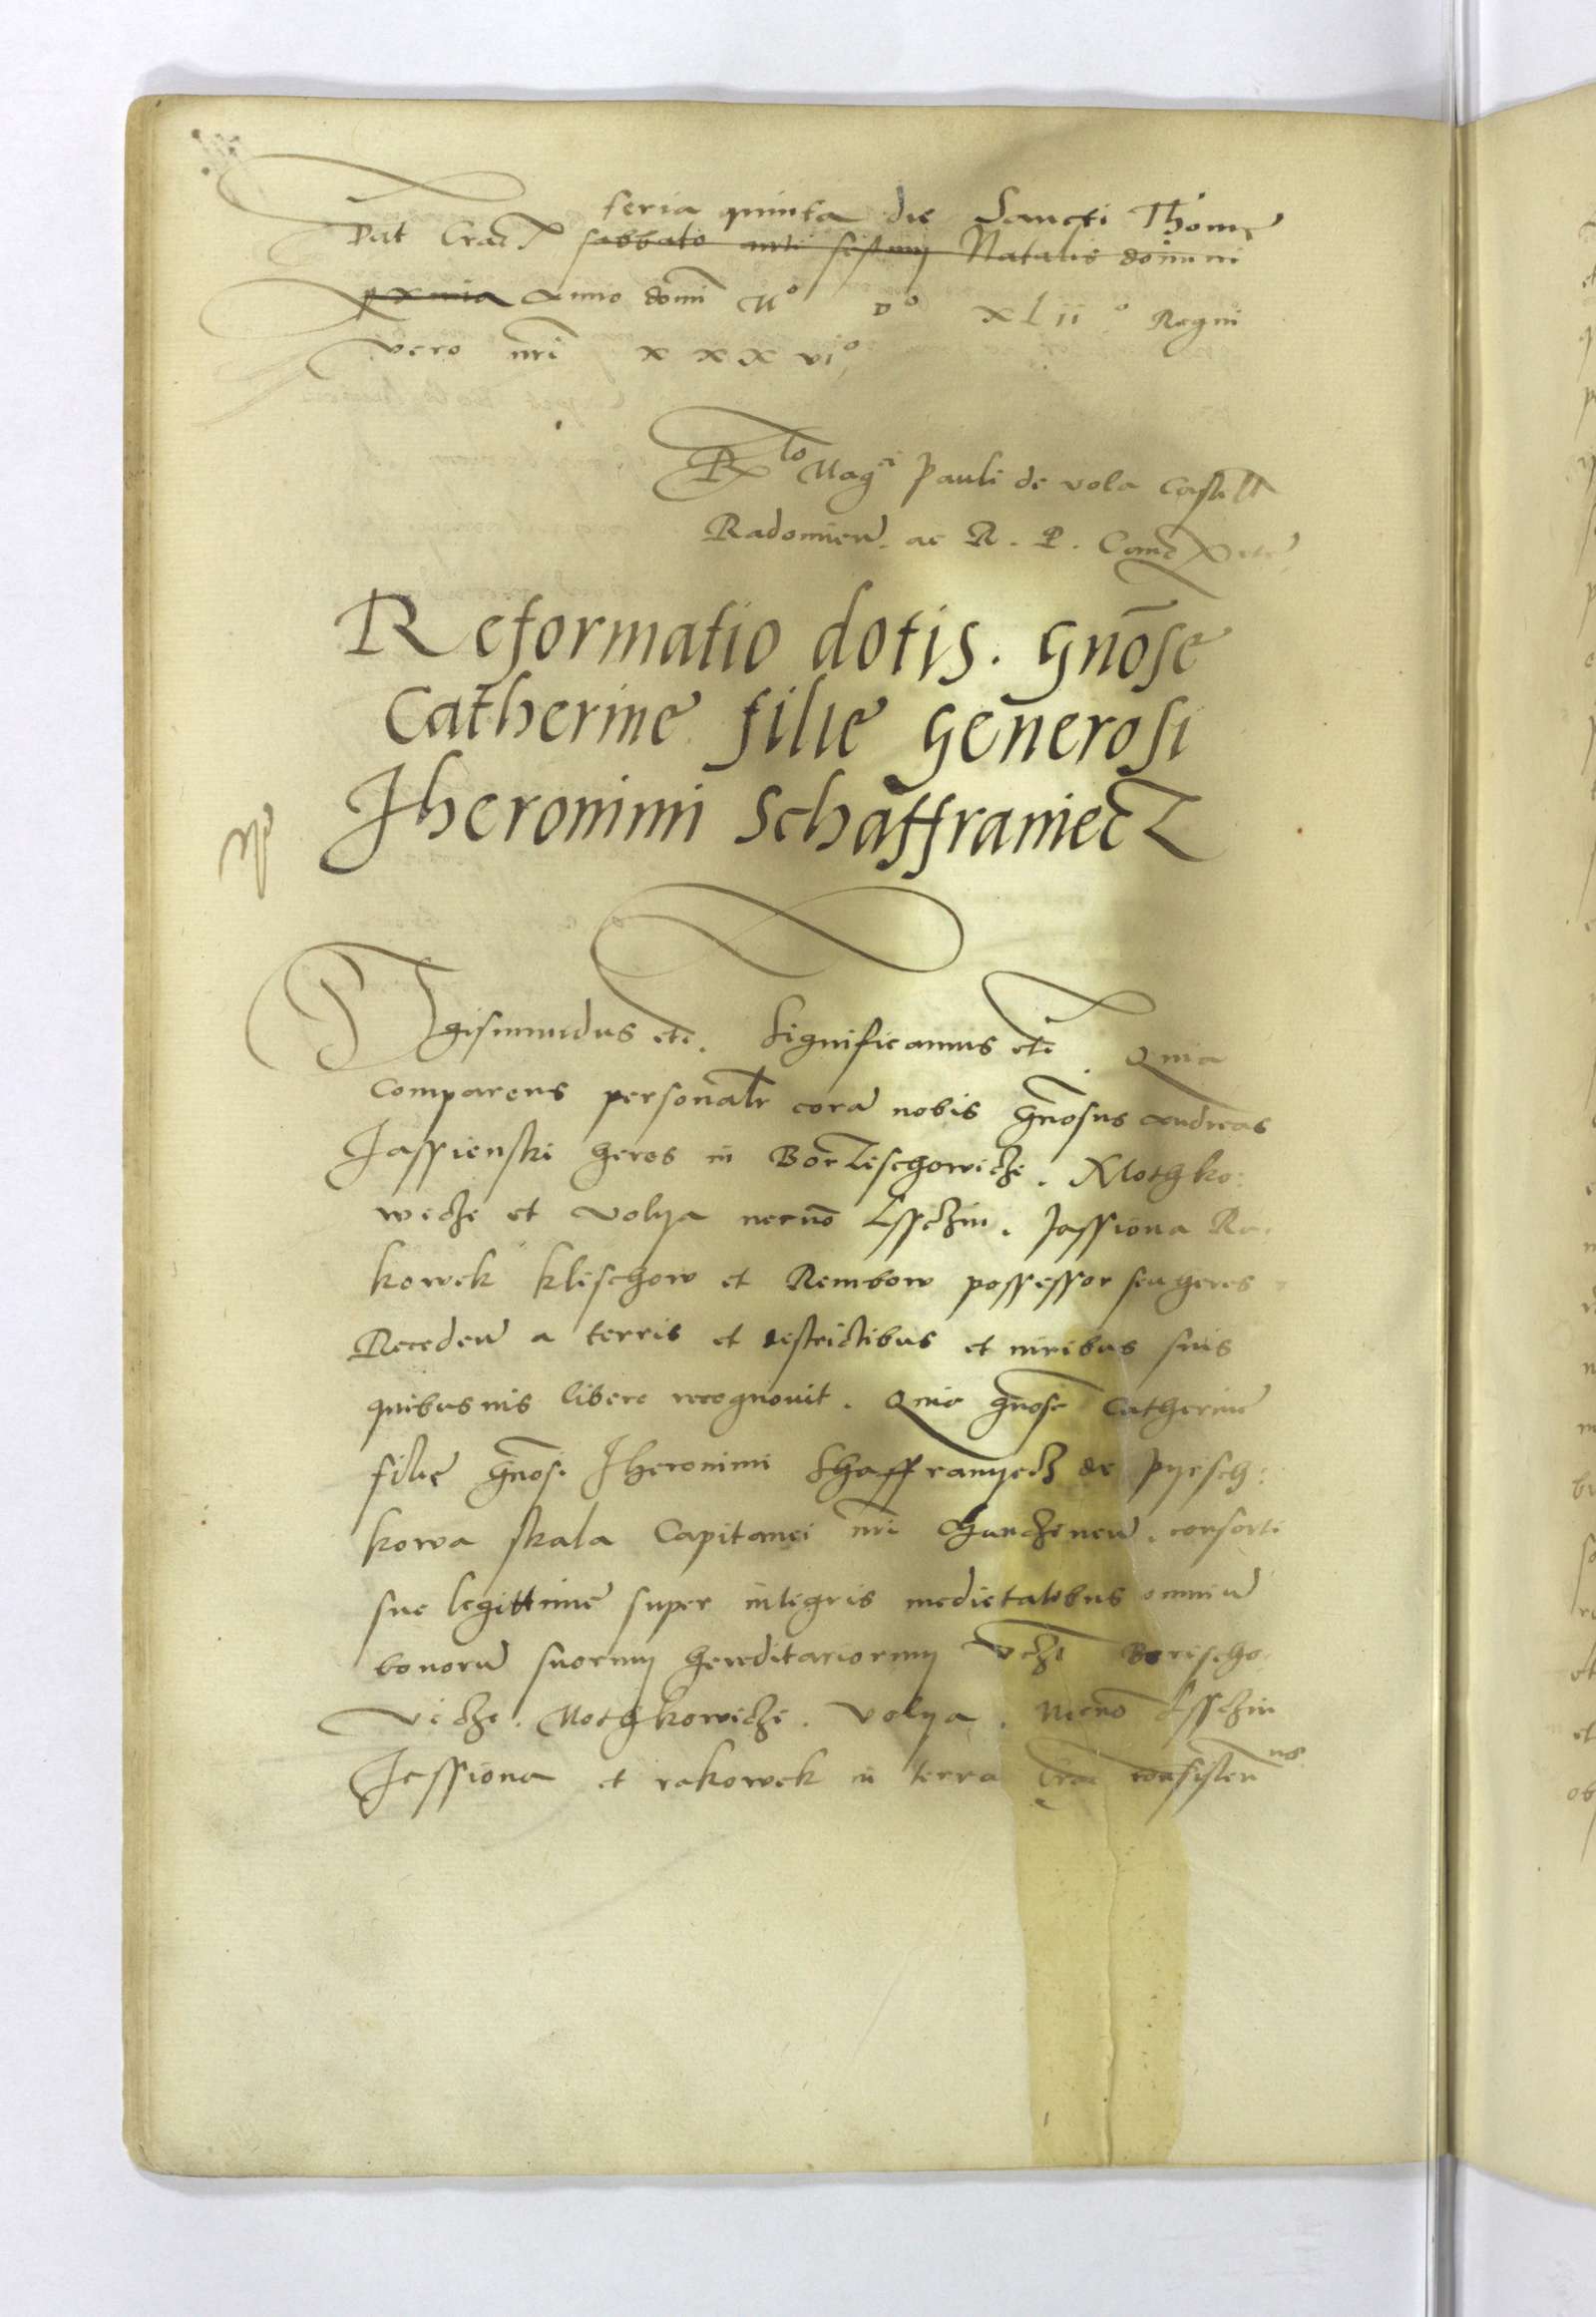 feria quinta die Sancti Thome
Dat Crac sabbato ante festum Natalis domini
proxima Anno domi Mº Dº XLIIº Regni
vero nri XXXVIº
Rlo Magci Pauli de vola Castell
Radomien. ac R. P. Canc etc
Reformatio dotis. gnose
Catherine filie generosi
Jheronimi Schaffraniecz
Sigismundus etc. Significamus etc. Quia
comparens personalr cora nobis gnosus Andreas
Jassienski heres in Borzischowicze. Mothko:
wicze et Volya necno Lssczin. Jassiona Ra.
kowek Klischow et Rembow possessor seu heres
Receden a terris et districtibus et iuribus suis
quibusuis libere recognouit. Quia gnose Catherine
filie gnosi Jheronimi Shaffranyecz de Pyesch:
kowa skala Capitanei nri Chanczinen. consorti
sue legittime super integris medietatibus omniu
bonoru suorum hereditariorum vcze Borischo
vicze. Mothkowicze. Volya. Necno Lssczin
Jassiona et rakowek in terra Crac consisten